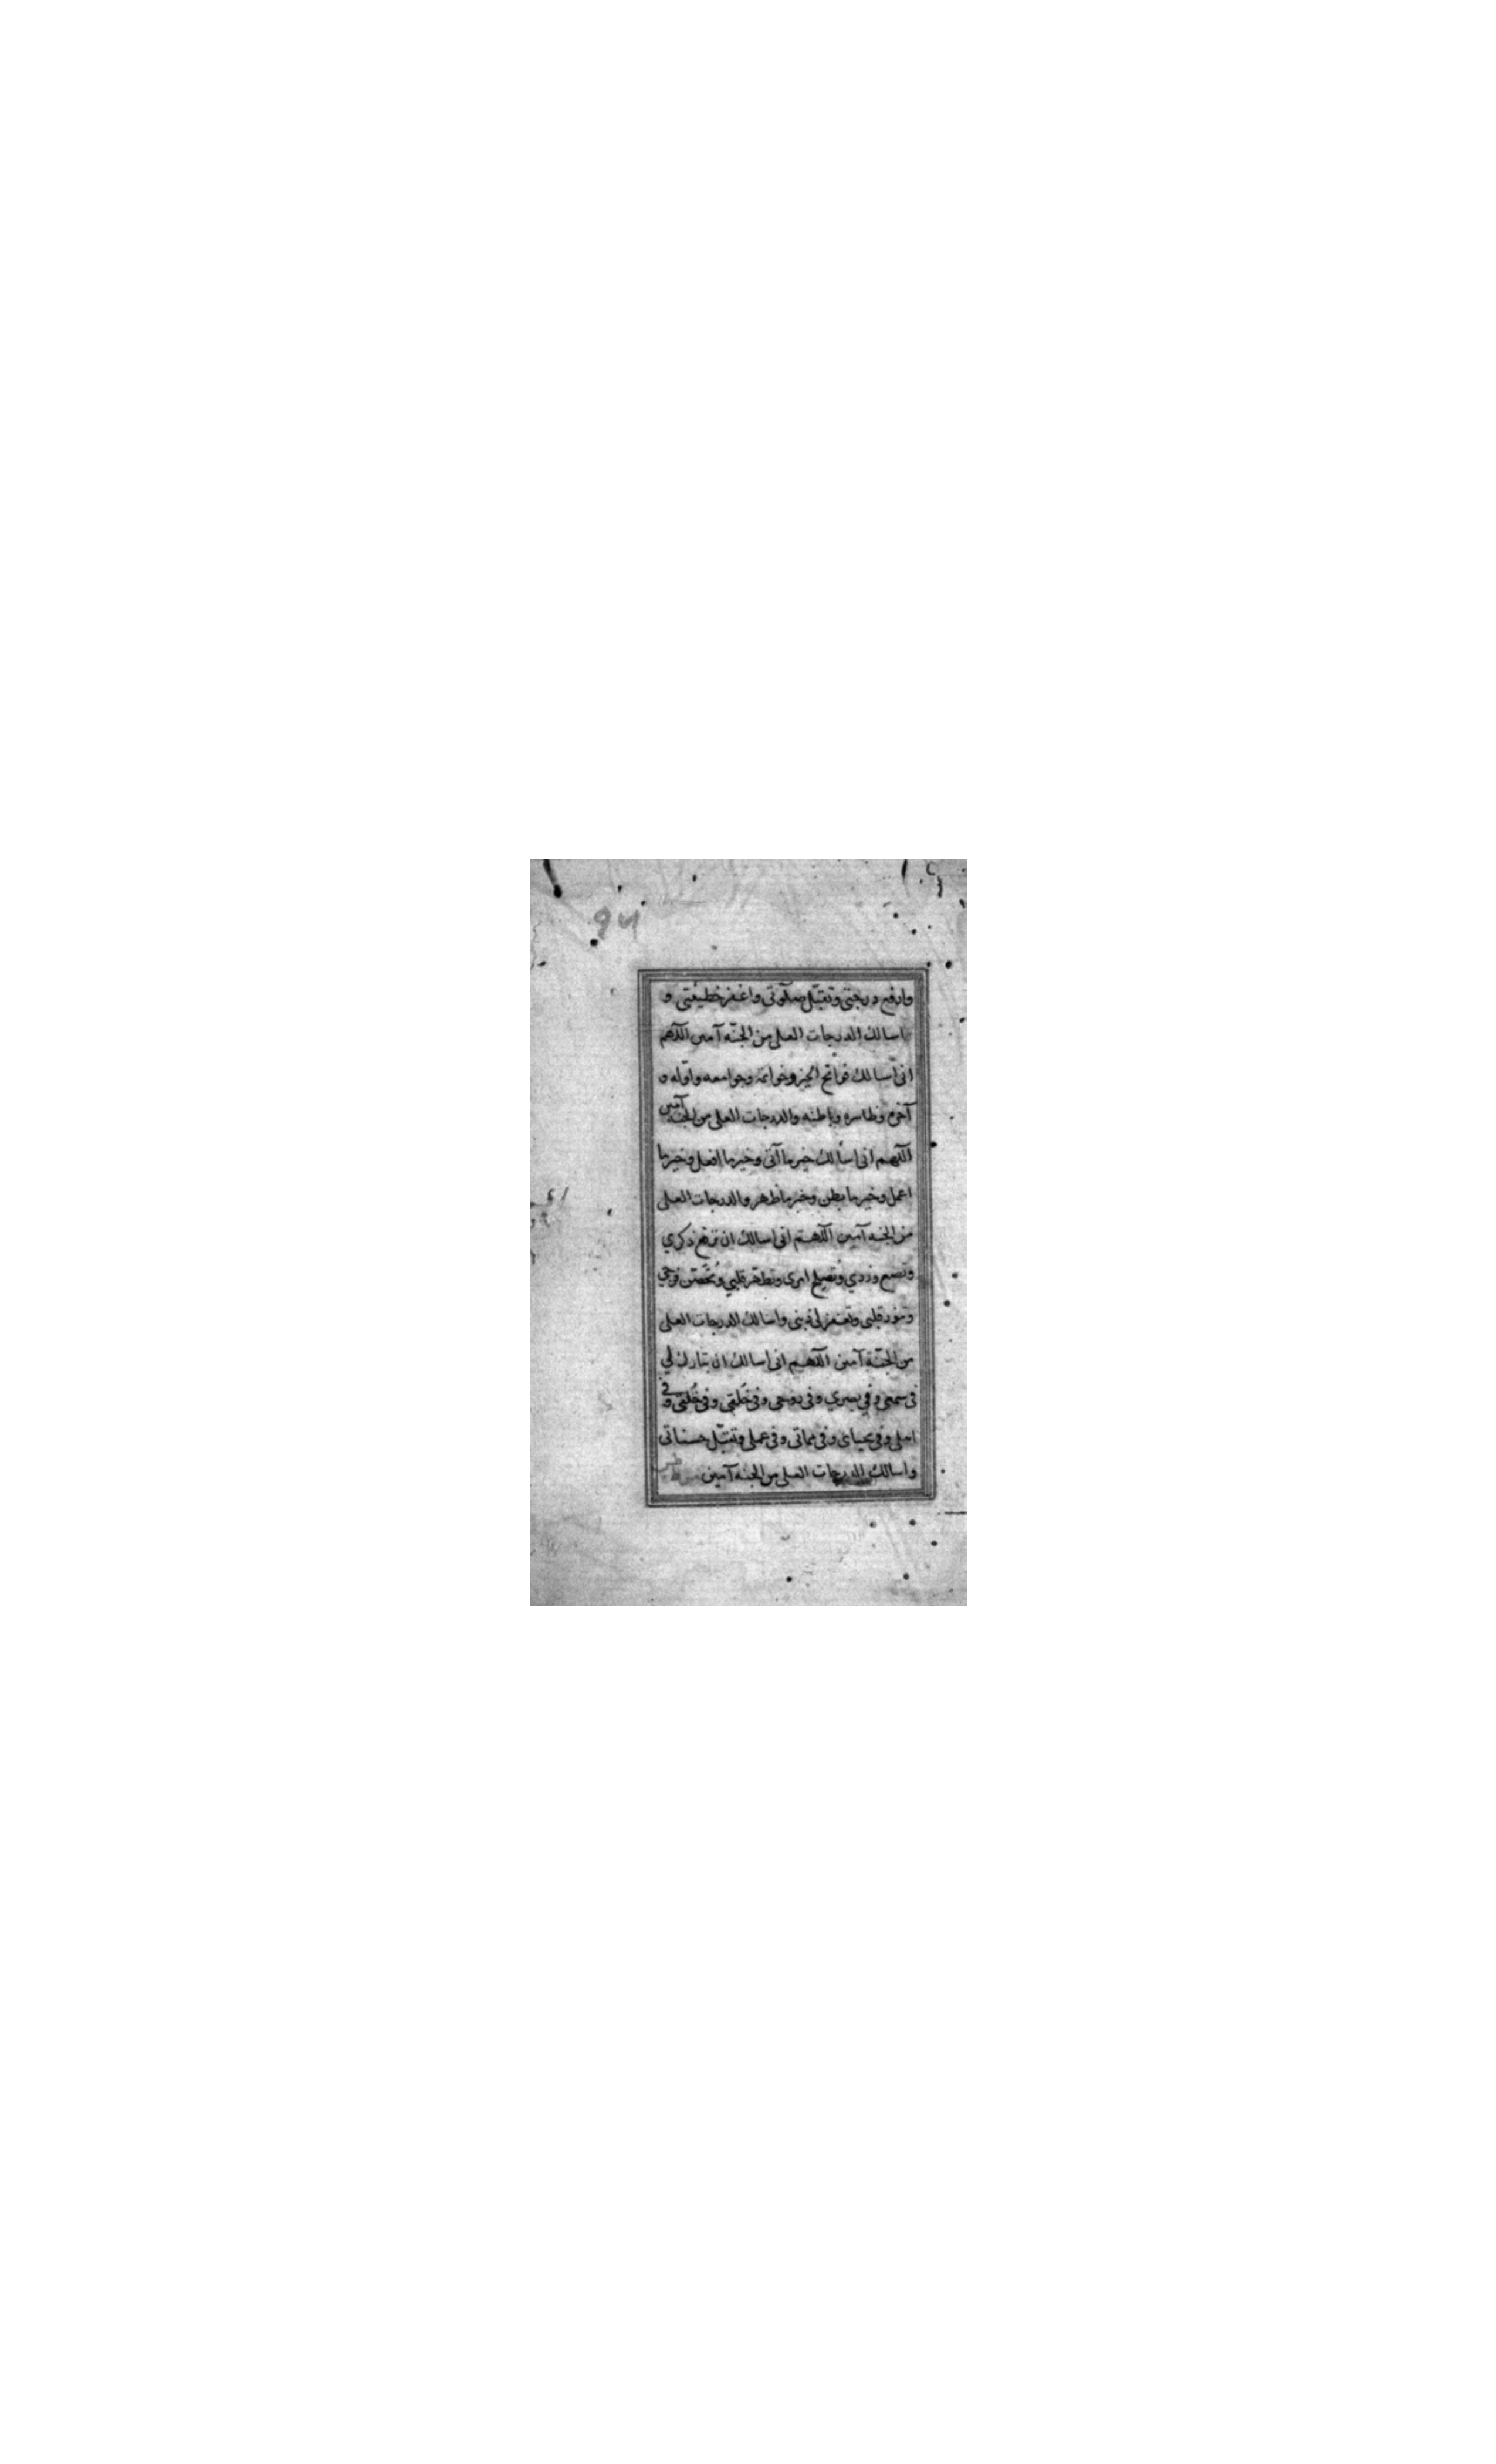 وارفع درجتي وتقبّل صلوتي واغفر خطيئتي و
اسالك الدرجات العلى من الجنّه آمين اللّهم
انّى اسالك فواتح الخير وخواتمه وجوامعه واوّله و
آخره وظاهره وباطنه والدرجات العلى من الجنه آمين
اللّهم انى اسألك خير ما آتى وخير ما افعل وخير ما
اعمل وخير ما بطن وخير ما ظهر والدرجات العلى
من الجنه آمين اللّهم انى اسالك ان ترفع ذكري
وتضع وزري وتصلح امرى وتطهّر قلبي وتُحَصّن فرجي
وتنوّر قلبى وتغفر لى ذنبى واسالك الدرجات العلى
من الجنّة آمين اللّهم انى اسالك ان تبارك لي
فى سمعى وفي بصري وفى روحى وفى خَلقى وفى خُلقى وفى
اهلى وفى محياى وفى مماتى وفى عملى وتقبّل حسناتى
واسالك الدرجات العلى من الجنه آمين